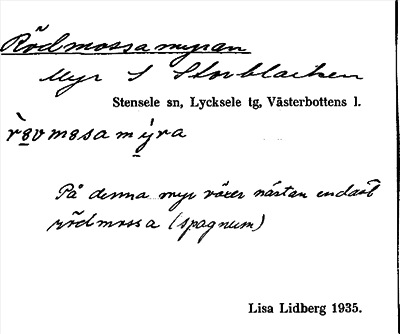 Rödmossamyran
Myr S Storblaiken
Stensele sn, Lycksele tg, Västerbottens l.
På denna myr växer nästan endast
rödmossa (spagnum)
Lisa Lidberg 1935.